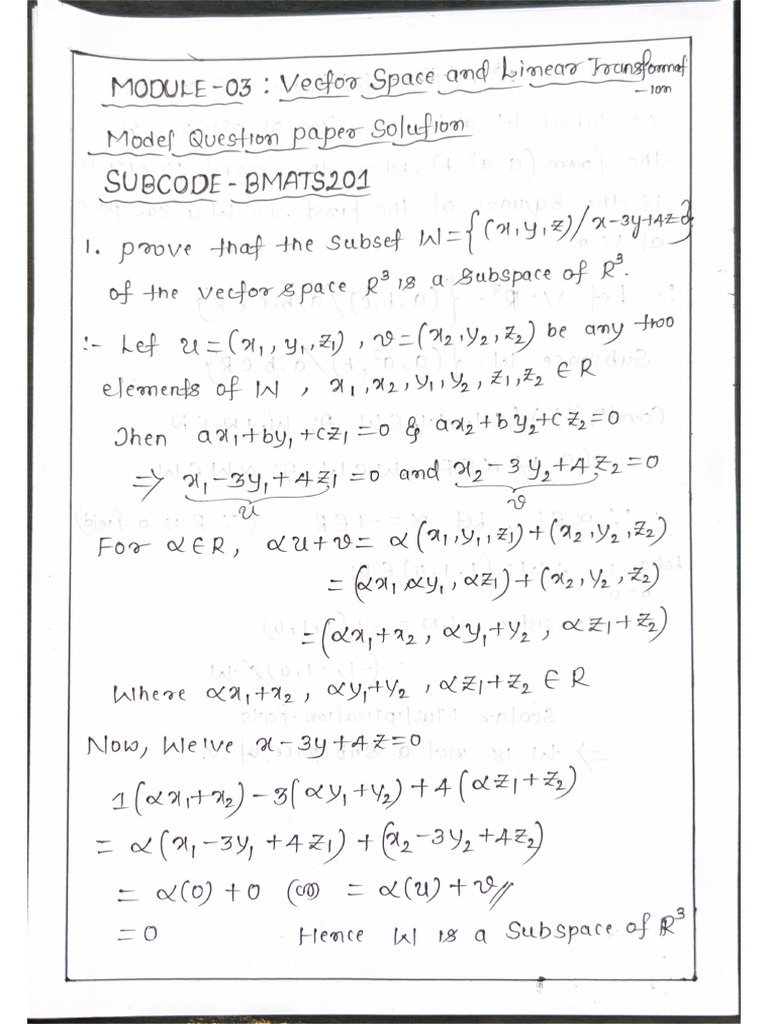 MODULE-03 : Vector Space and Linear Transformat
-ion
Model Question paper Solution
SUBCODE - BMATS201
1. prove that the subset W = {(x, y, z) / x-3y+4z=0}
of the vector space R³ is a subspace of R³.
:- Let u = (x₁, y₁, z₁), v = (x₂, y₂, z₂) be any two
elements of W, x₁, x₂, y₁, y₂, z₁, z₂ ∈ R
Then ax₁+by₁+cz₁=0 & ax₂+by₂+cz₂=0
=> x₁-3y₁+4z₁=0 and x₂-3y₂+4z₂=0
u v
For α∈R, αu+v = α(x₁, y₁, z₁)+(x₂, y₂, z₂)
= (αx₁, αy₁, αz₁)+(x₂, y₂, z₂)
= (αx₁+x₂, αy₁+y₂, αz₁+z₂)
Where αx₁+x₂, αy₁+y₂, αz₁+z₂ ∈ R
Now, We've x-3y+4z=0
1(αx₁+x₂)-3(αy₁+y₂)+4(αz₁+z₂)
= α(x₁-3y₁+4z₁)+(x₂-3y₂+4z₂)
= α(0)+0 (or) = α(u)+v //
= 0 Hence W is a Subspace of R³